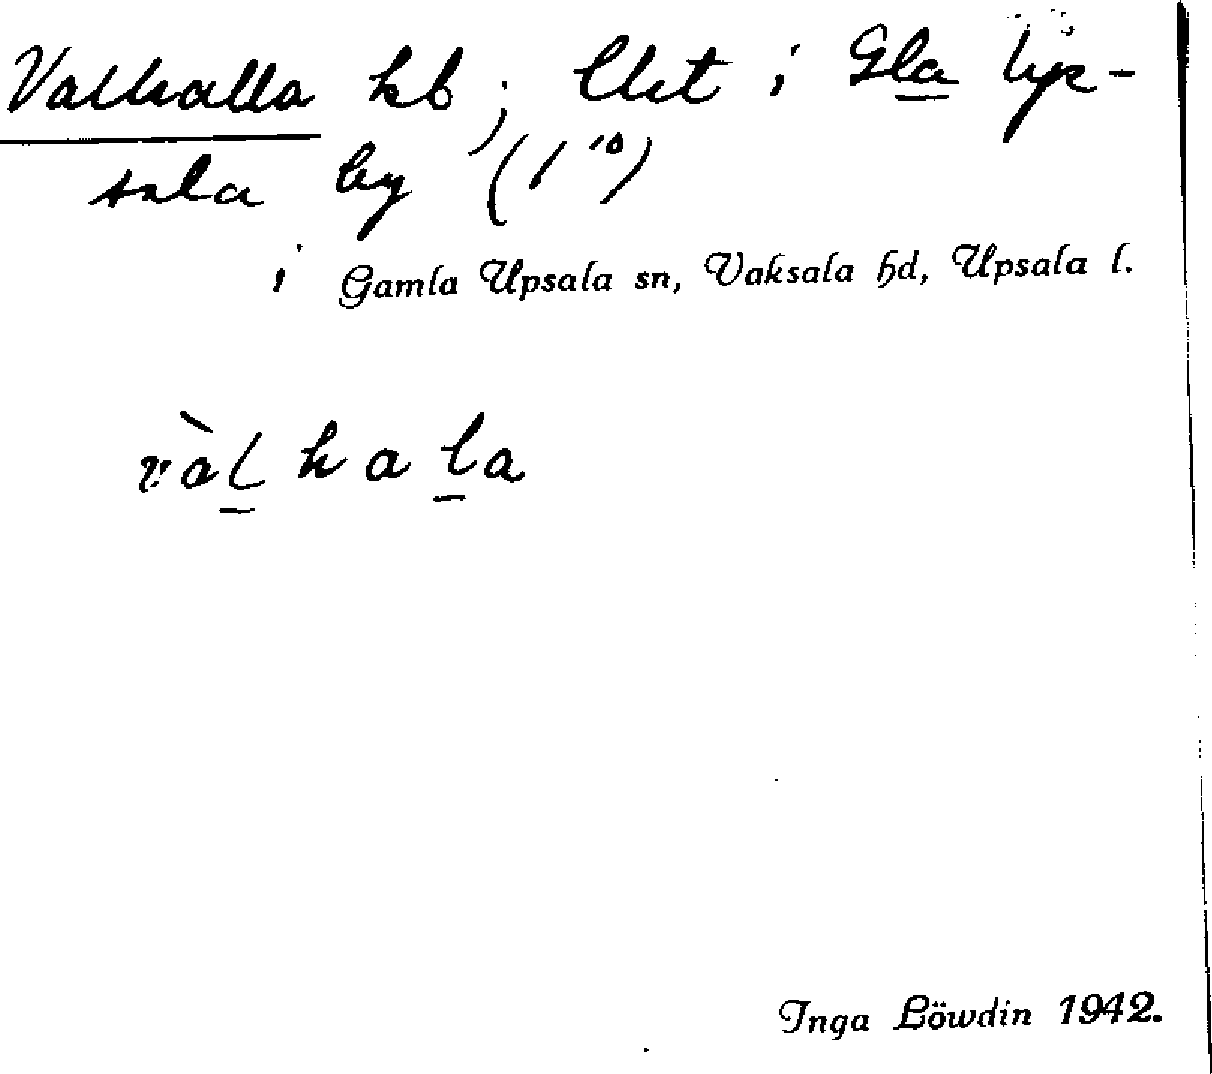 Valhalla hb; Uet i Gla Up-
sala by (1¹⁰)
i Gamla Upsala sn, Vaksala hd, Upsala l.
vàl hala
Inga Löwdin 1942.